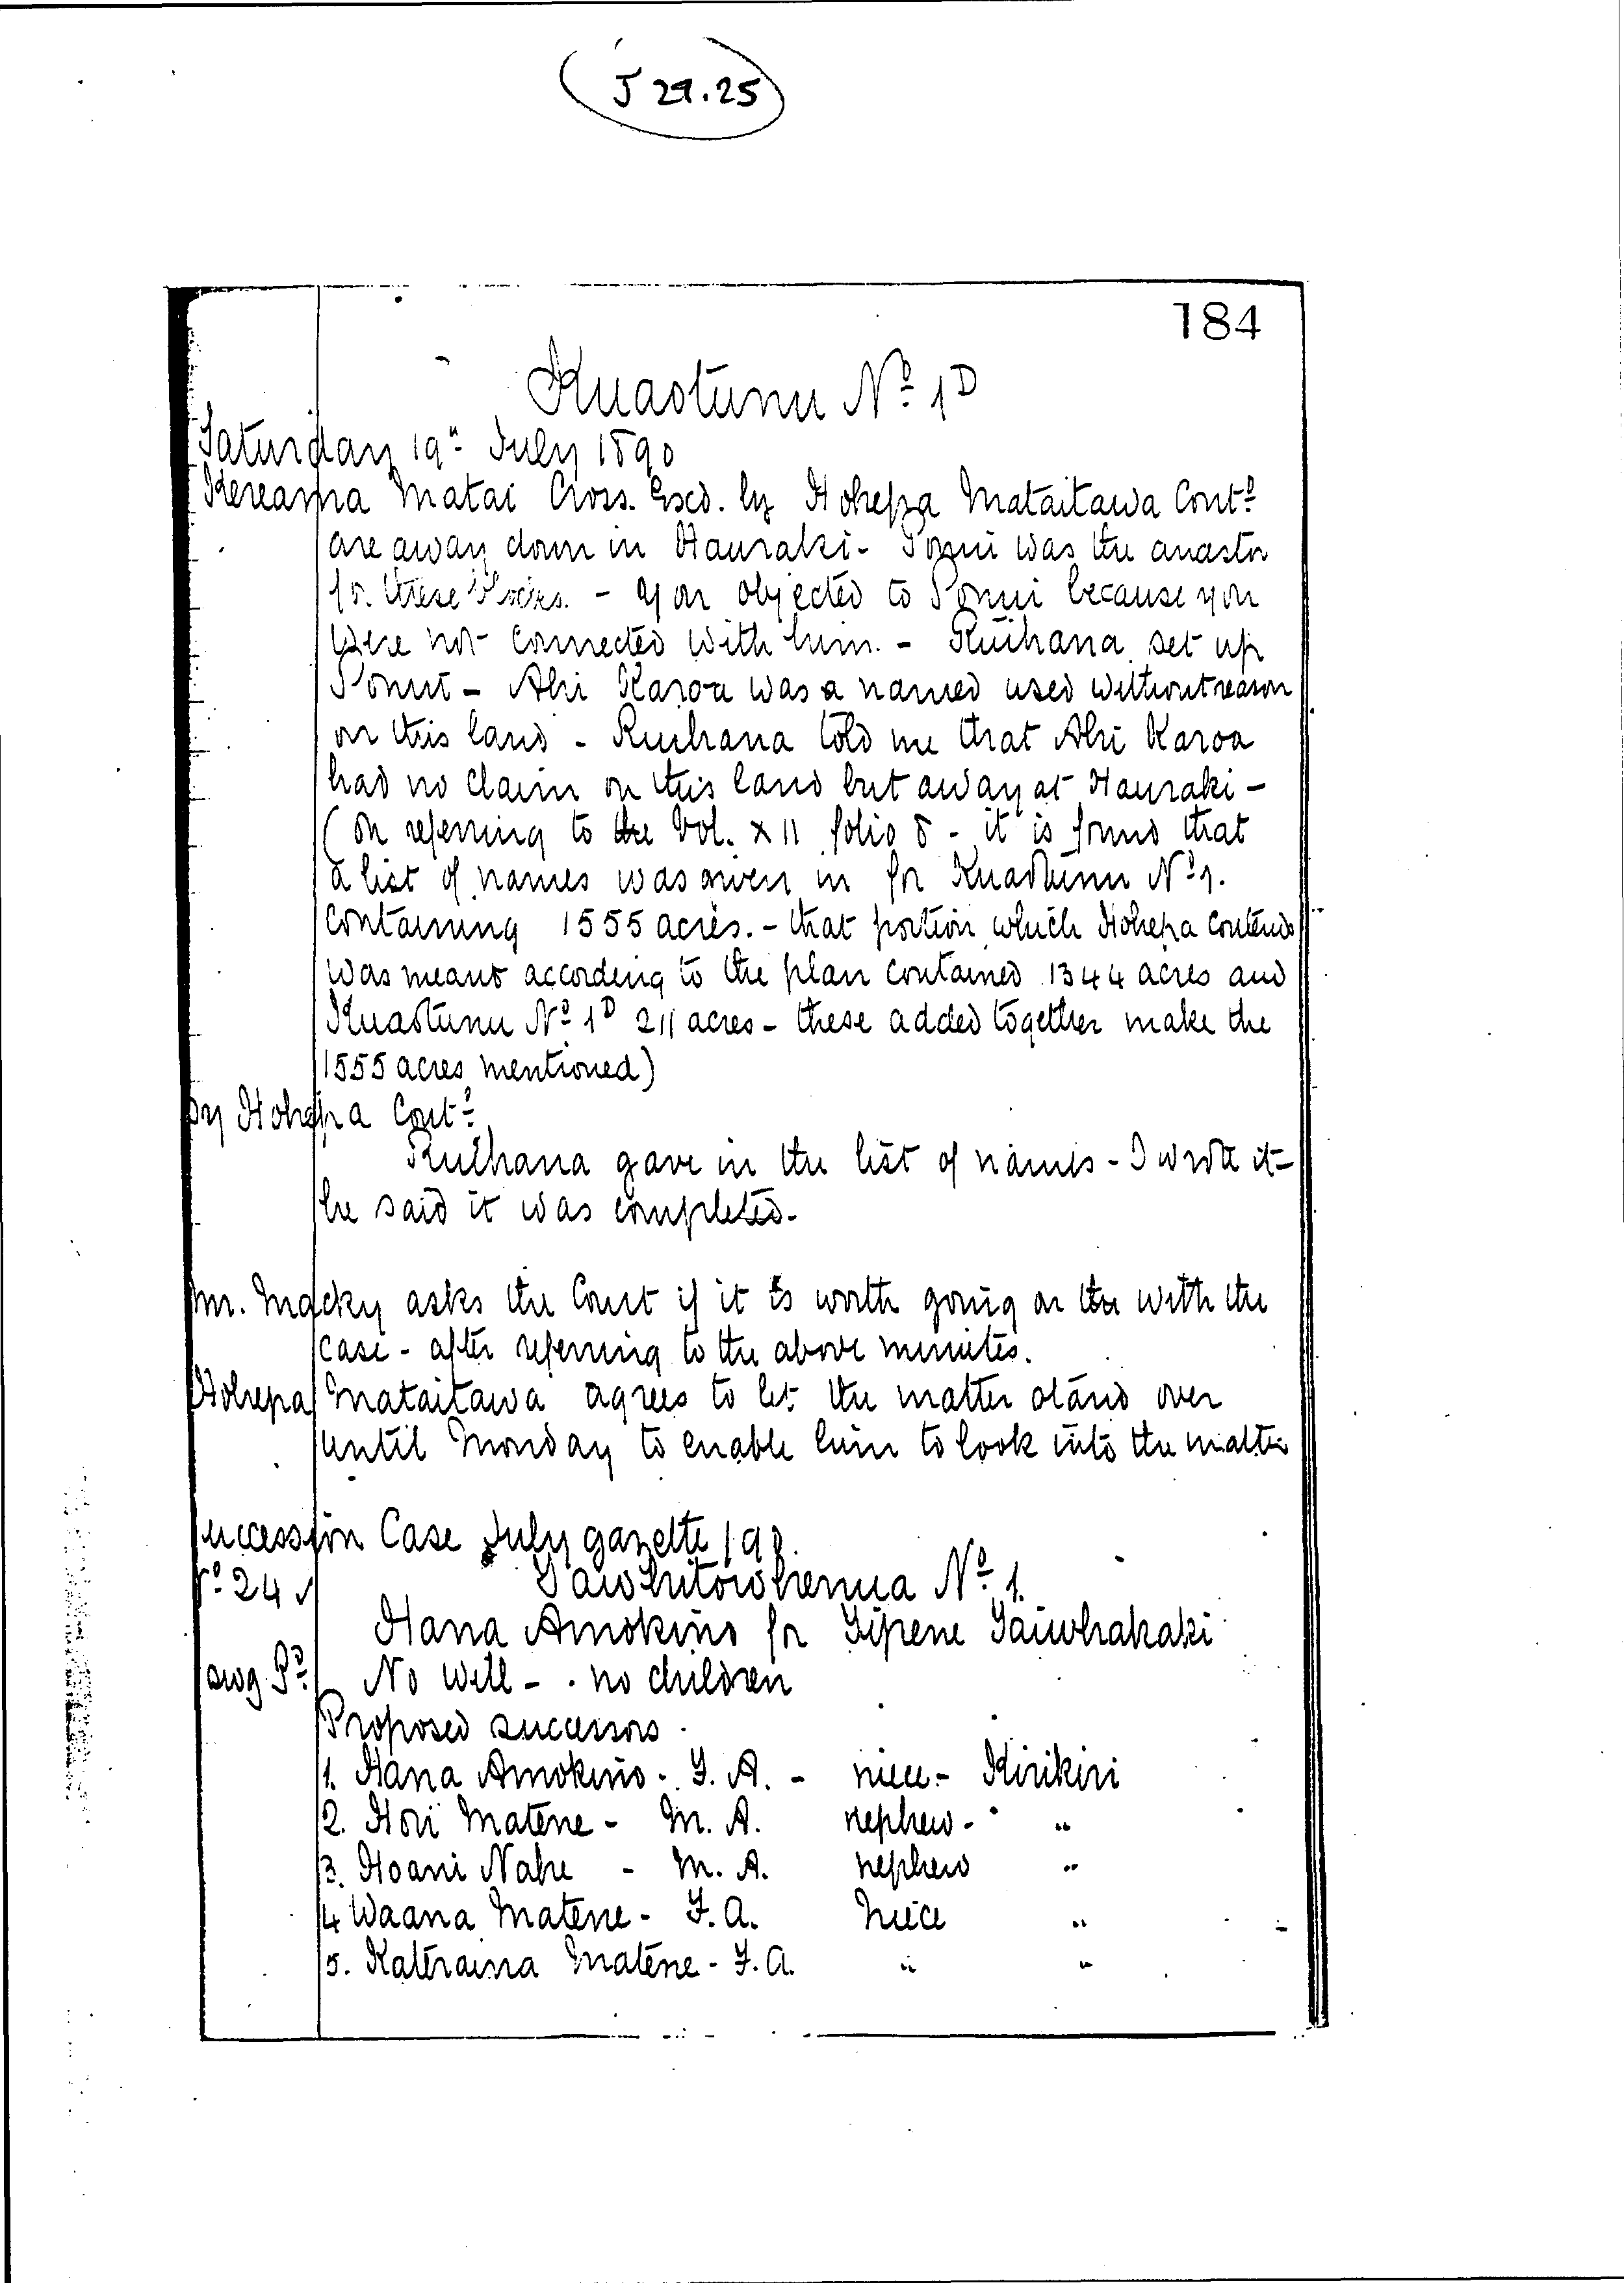 J 29.25
184
Kuaotunu No. 1D
Saturday 19" July 1890
Kereama Matai Cross. Exed. by Hohepa Mataitawa Contd
are away down in Hauraki - Ponui was the ancestor
for these blocks. - You objected to Ponui because you
were not connected with him. - Ruihana set up
Ponui - Ahi Karoa was a named used without reason
on this land - Ruihana told me that Ahi Karoa
had no claim on this land but away at Hauraki -
(On referring to the Vol. XII folio 8 - it is found that
a list of names was given in for Kuaotunu No. 1.
containing 1555 acres. - that portion which Hohepa contends
was meant according to the plan contained 1344 acres and
Kuaotunu No. 1D 211 acres - these added together make the
1555 acres mentioned)
By Hohepa Contd
Ruihana gave in the list of names - I wrote it -
he said it was completed -
Mr. Macky asks the Court if it is worth going on the with the
case - after referring to the above minutes.
Hohepa Mataitawa agrees to let the matter stand over
until Monday to enable him to look into the matter
Succession Case July gazette /90.
No. 24 Tawhitowhenua No. 1.
Hana Amokino for Tipene Taiwhakaki
No Will - no children
Proposed successors
1. Hana Amokino - F. A. - niece - Kirikiri
2. Hori Matene - M. A. nephew - "
3. Hoani Nahe - M. A. nephew "
4 Waana Matene - F. A. Niece "
5. Kateraina Matene - F. A. " "